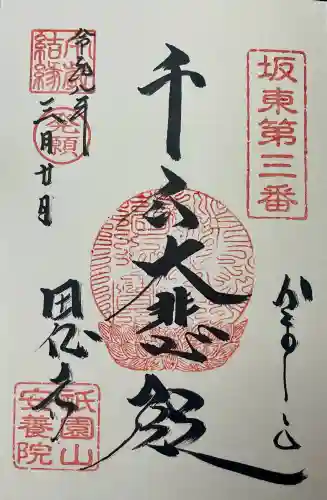 坂東第三番
かまくら
千手大悲殿
令和
年
三月廿日
結縁
発願
田代寺
祇園山
安養院